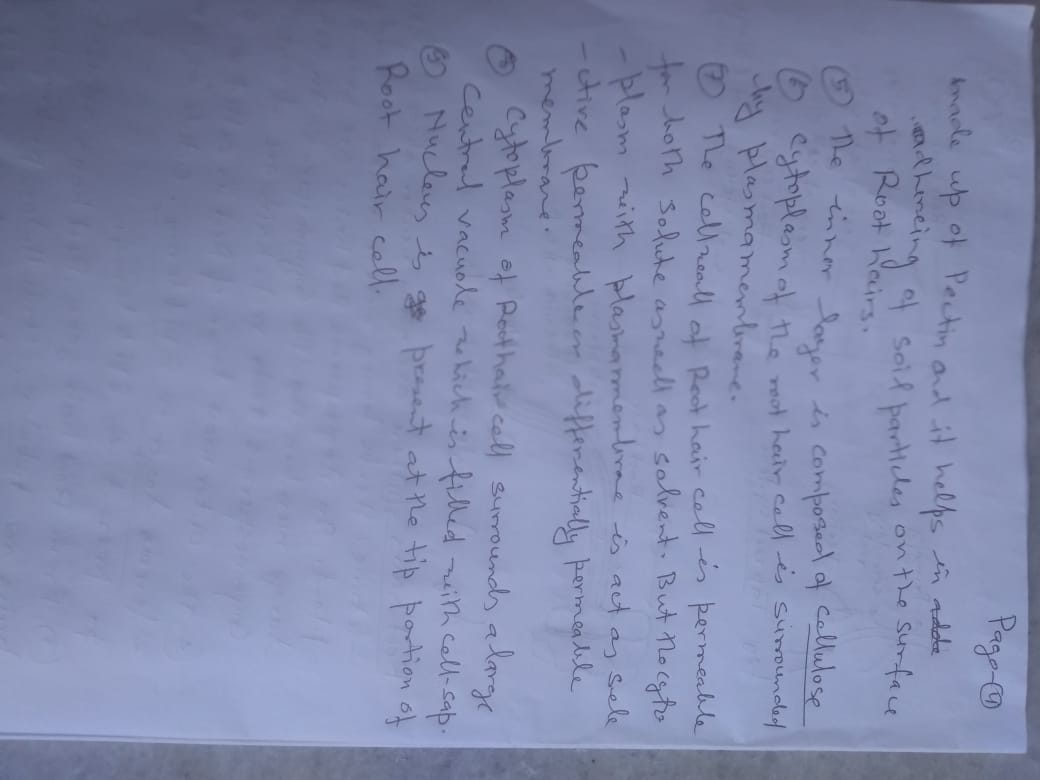 Page-(4)
made up of Pectin and it helps in
adhering of soil particles on the surface
of Root hairs.
(5) The inner layer is composed of cellulose
(6) Cytoplasm of the root hair cell is surrounded
by plasmamembrane.
(7) The cell wall of Root hair cell is permeable
for both solute as well as solvent. But the cyto
-plasm with plasmamembrane is act as sele
-ctive permeable or differentially permeable
membrane.
(8) Cytoplasm of Root hair cell surrounds a large
Central vacuole which is filled with cell-sap.
(9) Nucleus is present at the tip portion of
Root hair cell.